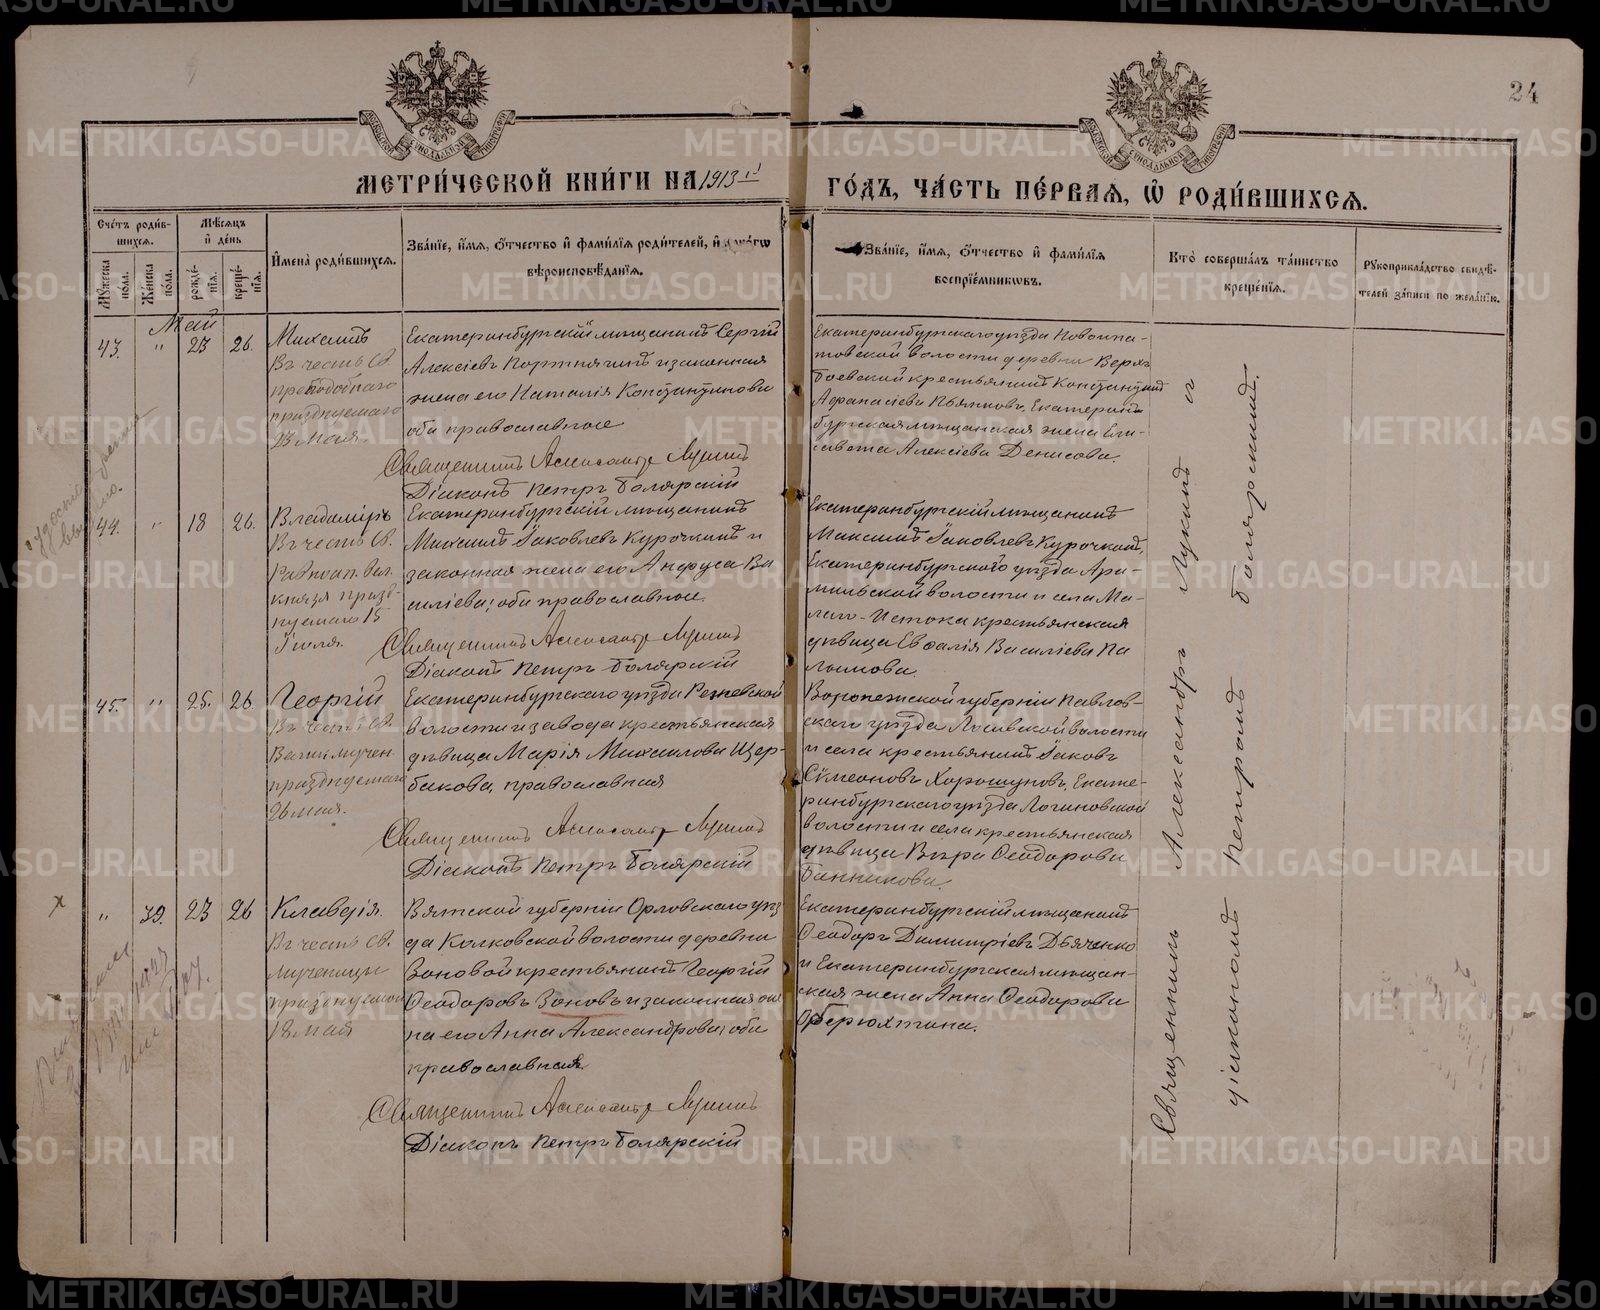 24
МЕТРИ́ЧЕСКОЙ КНИ́ГИ НА 1913 й
ГО́ДЪ, ЧА́СТЬ ПЕ́РВАЯ, Ѡ҆ РОДИ́ВШИХСЯ.
Сче́тъ роди́в-
шихся.
Мѣ́сяцъ
и҆ де́нь
Мꙋ́жеска по́ла.
Же́нска по́ла.
рожде́-
нїя.
креще́-
нїя.
И҆мена̀ роди́вшихся.
Зва́нїе, и҆́мя, ѻ҆́тчество и҆ фами́лїя роди́телей, и҆ како́гѡ
вѣроисповѣ́данїя.
Зва́нїе, и҆́мя, ѻ҆́тчество и҆ фами́лїя
воспрїе́мникѡвъ.
Кто̀ соверша́лъ та́инство
креще́нїя.
Рꙋкоприкла́дство свидѣ́-
телей за́писи по жела́нїю.
Май
43. " 23 26.
Михаилъ
Въ честь Св.
преподобнаго
празднуемаго
23 Мая.
Екатеринбургскій мѣщанинъ Сергій
Алексіевъ Портнягинъ и законная
жена его Наталія Константинова
оба православные
Священникъ Александръ Лукинъ
Діаконъ Петръ Боярскій
Екатеринбургскаго уѣзда Новоипа-
товской волости деревни Верхъ
Боевской крестьянинъ Константинъ
Афанасіевъ Пьянковъ, Екатерин-
бургская мѣщанская жена Ели-
савета Алексіева Денисова.
44. " 18 26.
Владиміръ
Въ честь Св.
Равноап. вел.
князя празд-
нуемаго 15
Іюля.
Екатеринбургскій мѣщанинъ
Михаилъ Іаковлевъ Курочкинъ и
законная жена его Анфуса Ва
силіева; оба православные.
Священникъ Александръ Лукинъ
Діаконъ Петръ Боярскій
Екатеринбургскій мѣщанинъ
Максимъ Іаковлевъ Курочкинъ,
Екатеринбургскаго уѣзда Ара-
мильской волости и села Ма-
лаго-Истока крестьянская
дѣвица Евфалія Василіева Па
лымова.
45. " 25. 26.
Георгій
Въ честь Св.
Велик. мучен.
празднуемаго
26 мая.
Екатеринбургскаго уѣзда Режевской
волости и завода крестьянская
дѣвица Марія Михаилова Щер-
бакова, православная
Священникъ Александръ Лукинъ
Діаконъ Петръ Боярскій
Воронежской губерніи Павлов-
скаго уѣзда Лосевской волости
и села крестьянинъ Іаковъ
Симеоновъ Хорошуновъ, Екате-
ринбургскаго уѣзда Логиновской
волости и села крестьянская
дѣвица Вѣра Ѳеодорова
Банникова.
" 39. 23 26
Клавдія.
Въ честь Св.
мученицы
празднуемой
18 мая
Вятской губерніи Орловскаго уѣз
да Колковской волости деревни
Зоновой крестьянинъ Георгій
Ѳеодоровъ Зоновъ и законная же
на его Анна Александрова; оба
православные.
Священникъ Александръ Лукинъ
Діаконъ Петръ Боярскій
Екатеринбургскій мѣщанинъ
Ѳеодоръ Димитріевъ Дьяченко
и Екатеринбургская мѣщан-
ская жена Анна Ѳеодорова
Оберюхтина.
Священникъ Александръ Лукинъ съ
діакономъ Петромъ Боярскимъ.
METRIKI.GASO-URAL.RU